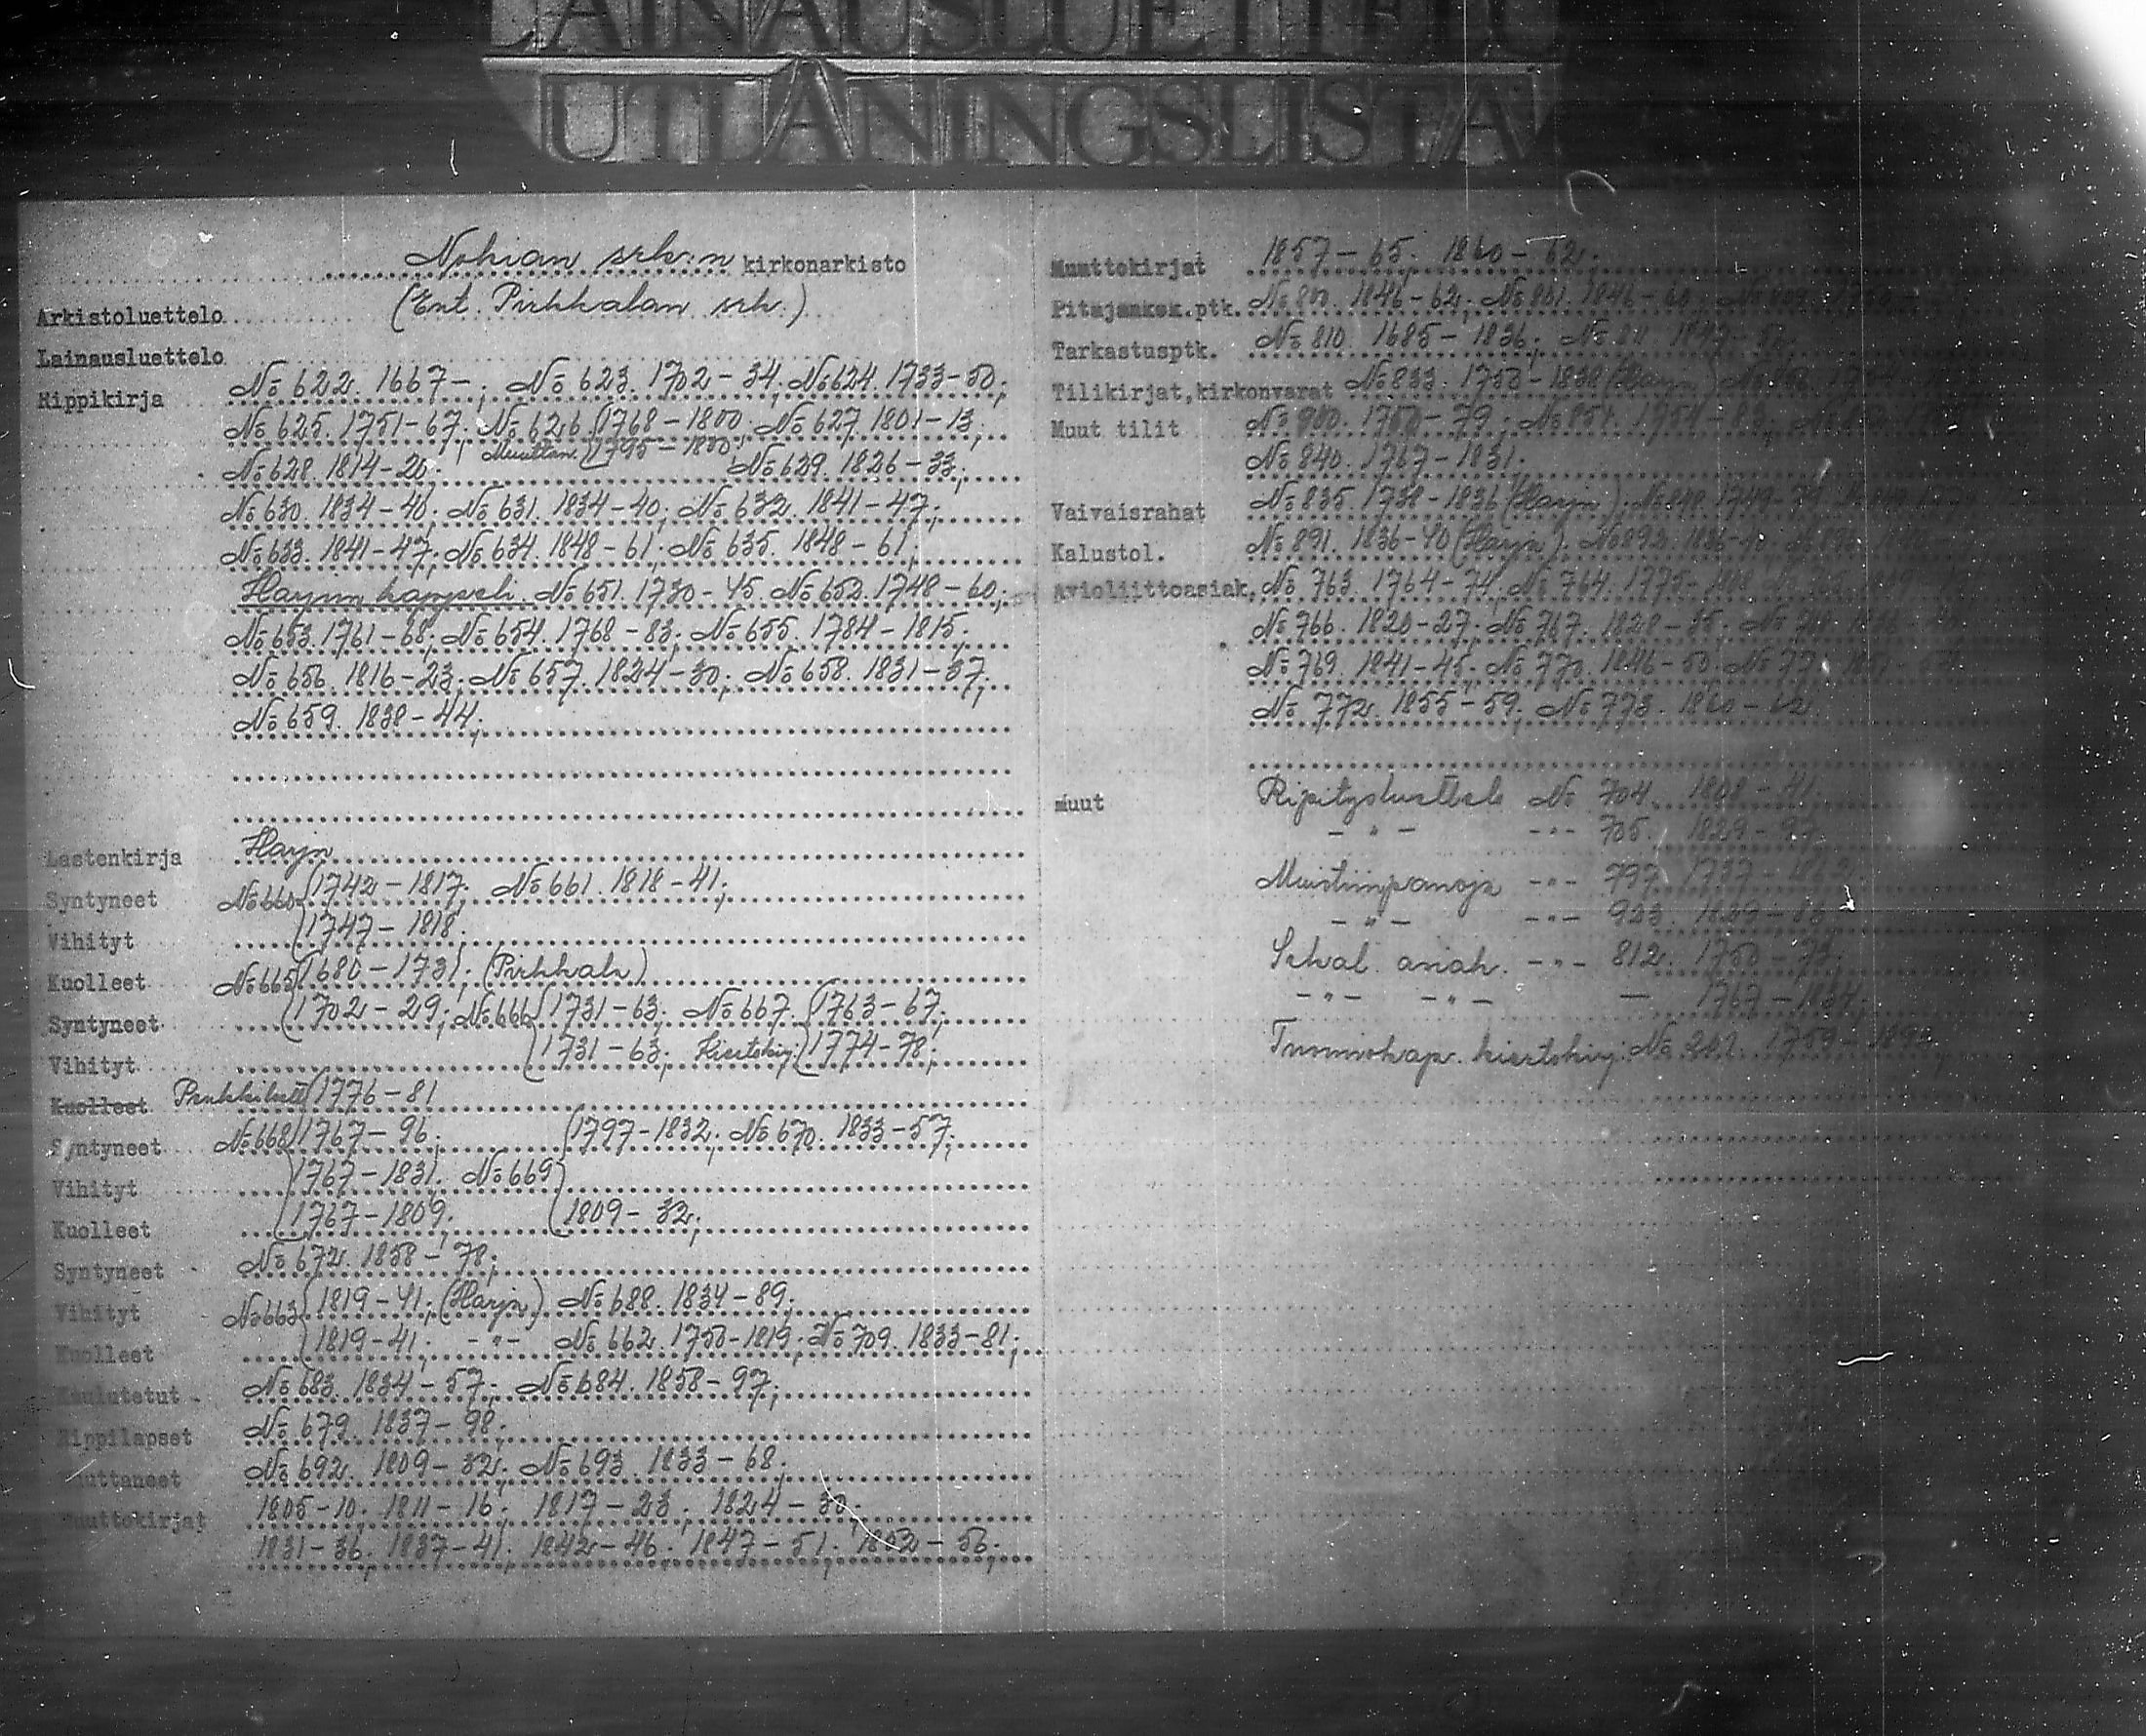 LAINAUSLUETTELO
UTLÅNINGSLISTA
Nokian srk:n kirkonarkisto
Arkistoluettelo (Ent. Pirkkalan srk.)
Lainausluettelo
Rippikirja No 622. 1667-; No 623. 1702-34; No 624. 1733-50;
No 625. 1751-67; No 626. 1768-1800; No 627. 1801-13;
Muuttan. 1795-1800
No 628. 1814-20; No 629. 1826-33;
No 630. 1834-40; No 631. 1834-40; No 632. 1841-47;
No 633. 1841-47; No 634. 1848-61; No 635. 1848-61;
Harjun kappeli. No 651. 1730-45. No 652. 1748-60;
No 653. 1761-68; No 654. 1768-83; No 655. 1784-1815;
No 656. 1816-23; No 657. 1824-30; No 658. 1831-37;
No 659. 1838-44;
Lastenkirja Harju
Syntyneet No 660 1742-1817; No 661. 1818-41;
Vihityt 1747-1818.
Kuolleet No 665 1680-1731; (Pirkkala)
Syntyneet 1702-29; No 666 1731-63; No 667. 1763-67;
Vihityt 1731-63; Kiertokirj. 1774-78;
Kuolleet 1776-81
Syntyneet No 668 1767-96; 1797-1832; No 670. 1833-57;
Vihityt 1767-1831. No 669
Kuolleet 1767-1809; 1809-32;
Syntyneet No 672. 1858-78;
Vihityt No 663 1819-41; (Harju) No 688. 1834-89;
Kuolleet 1819-41; -"- No 662. 1750-1819; No 709. 1833-81;
Kuulutetut No 683. 1834-57; No 684. 1858-97;
Rippilapset No 679. 1837-98.
Muuttaneet No 692. 1809-32; No 693. 1833-68.
Muuttokirjat 1805-10; 1811-16; 1817-23; 1824-30;
1831-36; 1837-41; 1842-46; 1847-51; 1852-56;
Muuttokirjat 1857-65; 1860-62;
Pitäjänkok.ptk. No 800. 1846-62; No 801. 1846-60;
Tarkastusptk. No 810. 1685-1836; No 811.
Tilikirjat,kirkonvarat No 833. 1750-1838 (Harju)
Muut tilit No 900. 1750-79; No 851.
No 840. 1767-1831.
Vaivaisrahat No 835. 1738-1836 (Harju). No 848. 1749-79
Kalustol. No 891. 1836-40 (Harju). No 892.
Avioliittoasiak. No 763. 1764-74; No 764. 1775-
No 766. 1820-27; No 767. 1828-35;
No 769. 1841-45; No 770. 1846-50; No 771.
No 772. 1855-59; No 773. 1860-62
muut Ripitysluettelo No 704. 1808-41
-"- -"- 705. 1829-97
Muistiinpanoja -"- 797 1737-
-"- -"- 923. 1839-83
Sekal. asiak. -"- 812. 1750-73;
-"- -"- - 1767-1834;
Tuomiokap. kiertokirj. No 1759-